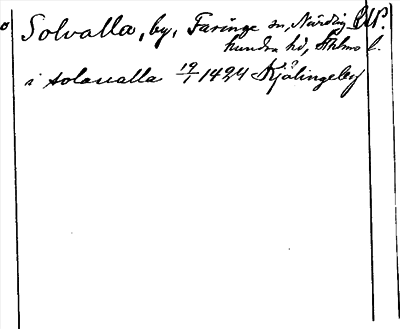 Solvalla, by, Faringe sn, Närding-
hundra hd, Sthlms l.
i solaualla 19/1 1424 Kjälingeby